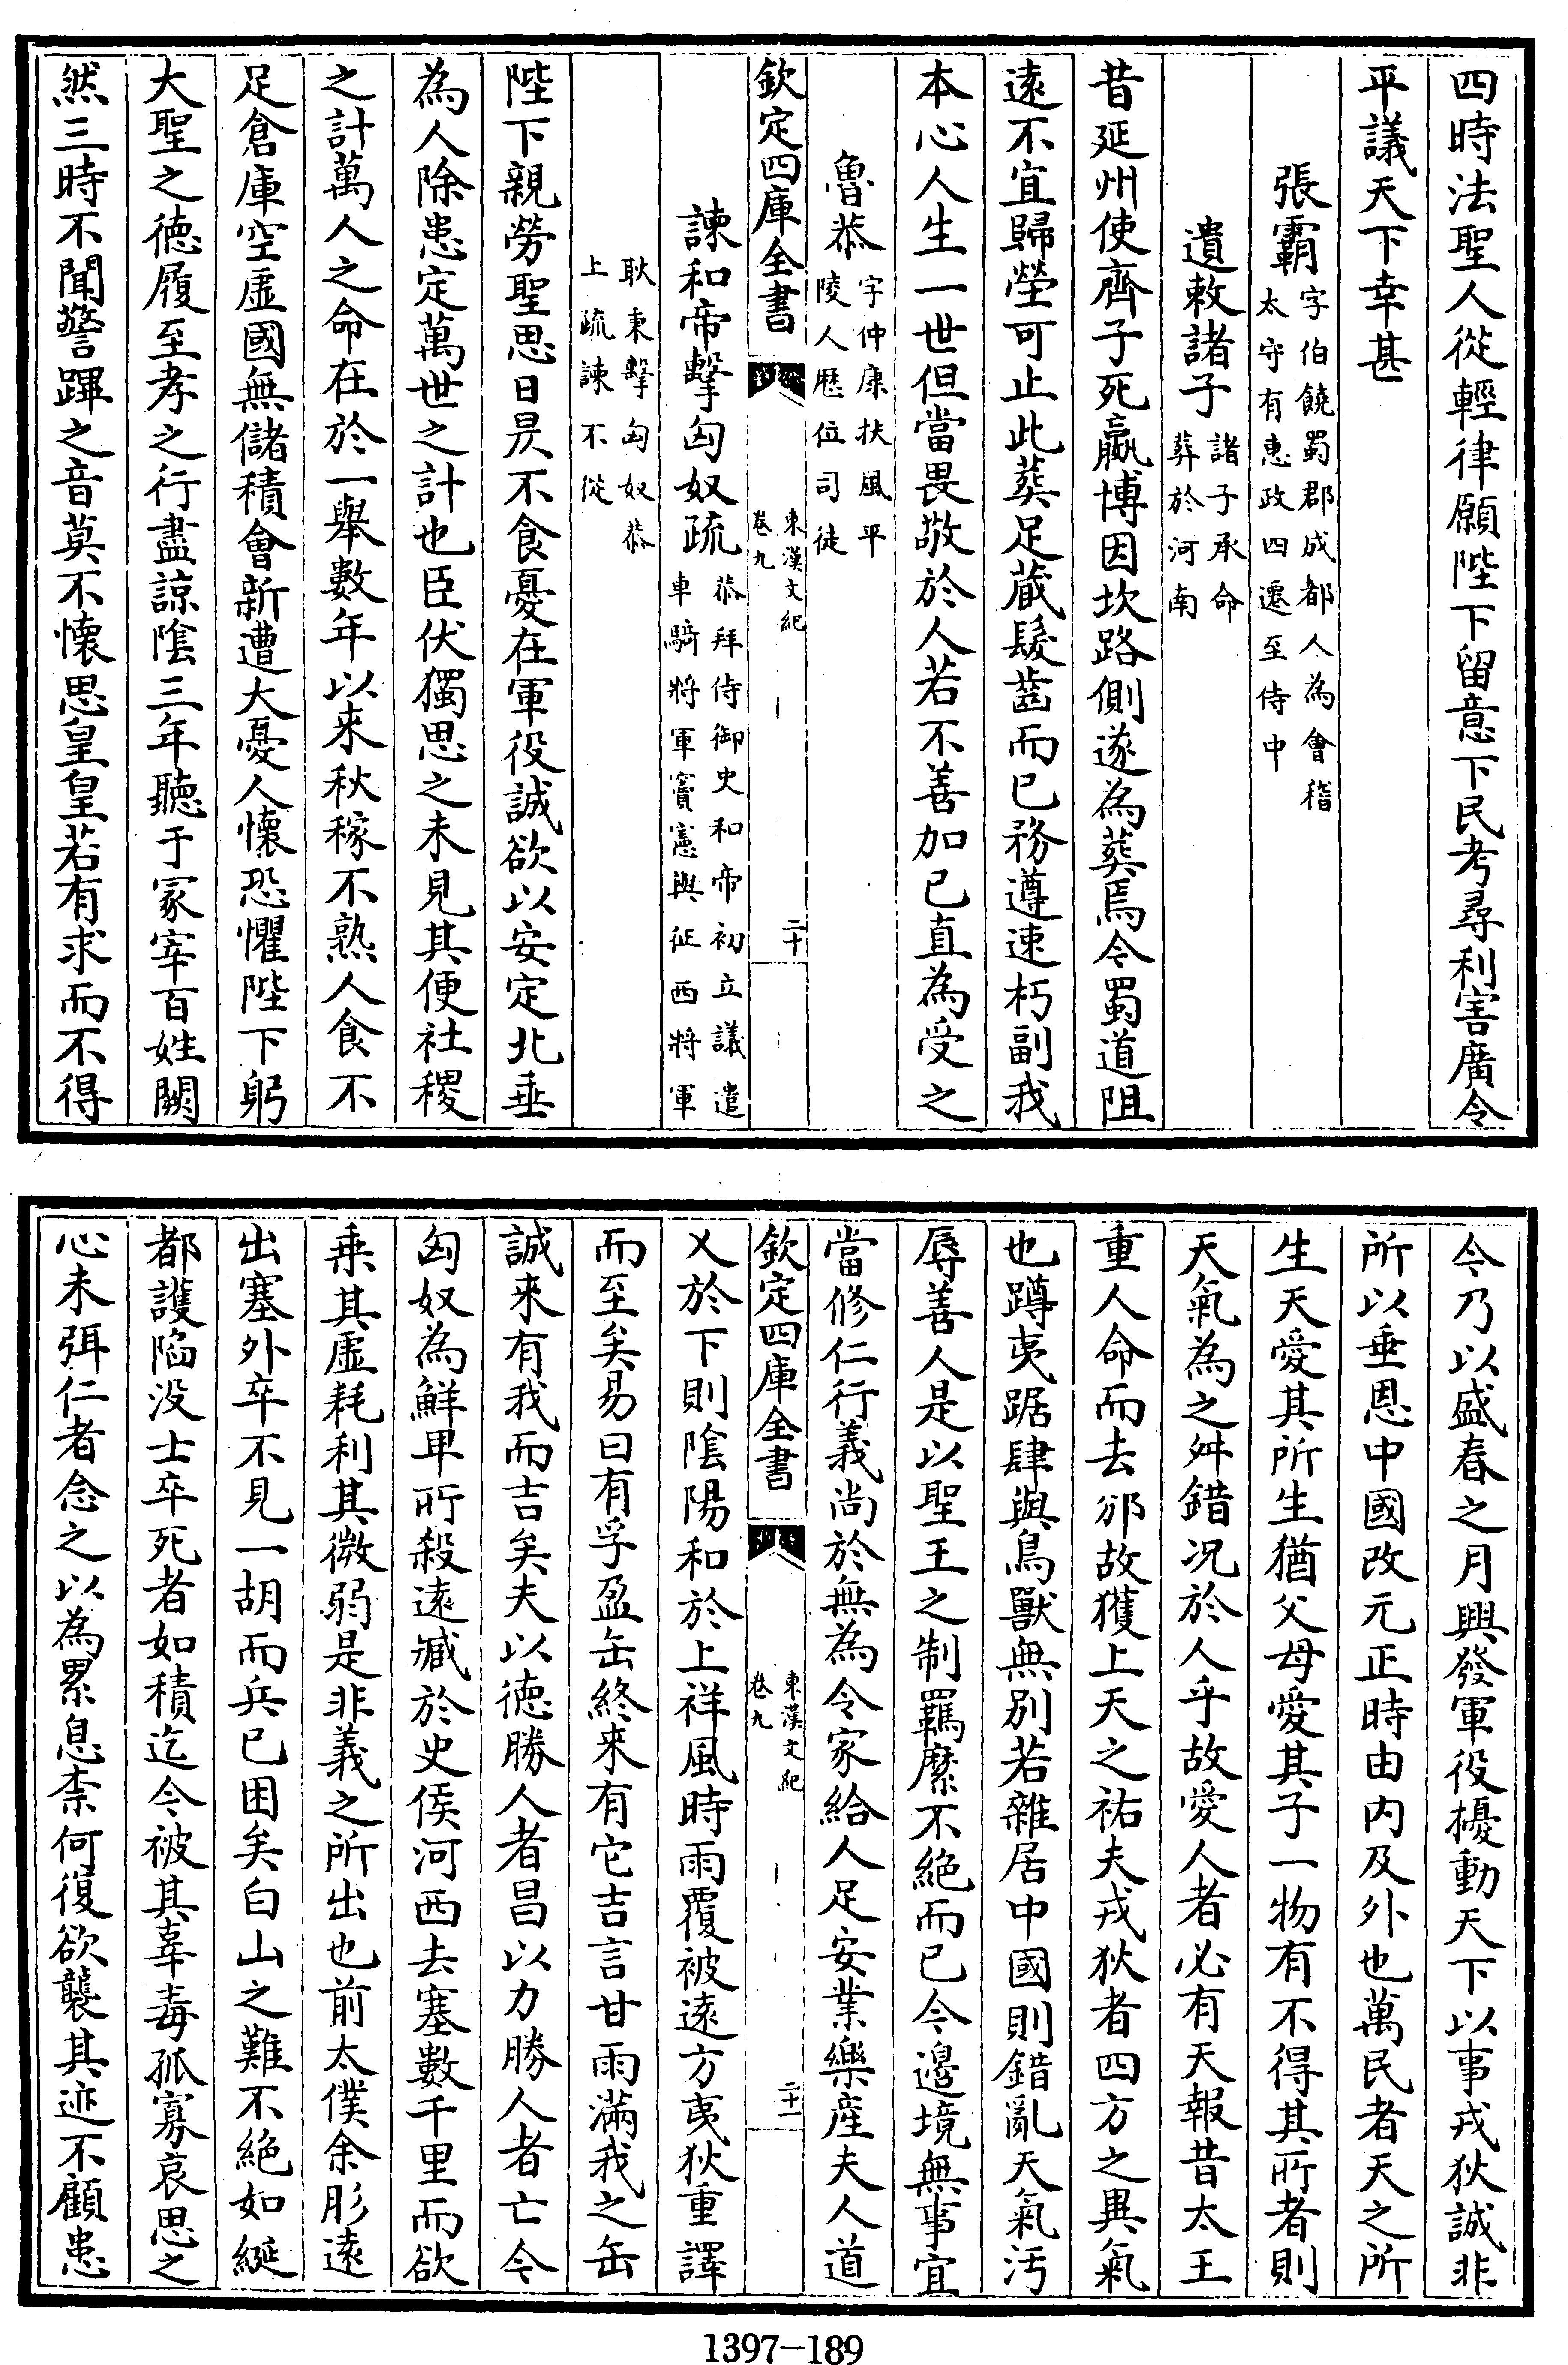 四時法聖人從輕律願陛下留意下民考尋利害廣令
平議天下幸甚
張霸字伯饒蜀郡成都人為會稽
太守有惠政四遷至侍中
遺敕諸子諸子承命
葬於河南
昔延州使齊子死嬴博因坎路側遂為葬焉今蜀道阻
遠不宜歸塋可止此葬足蔵髮齒而已務遵速朽副我
本心人生一世但當畏敬於人若不善加已直為受之
魯恭字仲康扶風平
陵人歴位司徒
欽定四庫全書
東漢文紀
卷九
二十
諫和帝擊匈奴疏恭拜侍御史和帝初立議遣
車騎將軍竇憲與征西將軍
耿秉擊匈奴恭
上疏諫不從
陛下親勞聖思日昃不食憂在軍役誠欲以安定北垂
為人除患定萬世之計也臣伏獨思之未見其便社稷
之計萬人之命在於一舉數年以来秋稼不熟人食不
足倉庫空虛國無儲積會新遭大憂人懷恐懼陛下躬
大聖之徳履至孝之行盡諒隂三年聽于冢宰百姓闕
然三時不聞警蹕之音莫不懷思皇皇若有求而不得
今乃以盛春之月興發軍役擾動天下以事戎狄誠非
所以垂恩中國改元正時由内及外也萬民者天之所
生天愛其所生猶父母愛其子一物有不得其所者則
天氣為之舛錯况於人乎故愛人者必有天報昔太王
重人命而去邠故獲上天之祐夫戎狄者四方之異氣
也蹲夷踞肆與鳥獸無別若雜居中國則錯亂天氣汚
辱善人是以聖王之制羈縻不絶而已今邉境無事宜
當修仁行義尚於無為令家給人足安業樂産夫人道
乂於下則隂陽和於上祥風時雨覆被逺方夷狄重譯
欽定四庫全書
東漢文紀
卷九
二十一
而至矣易曰有孚盈缶終来有它吉言甘雨滿我之缶
誠來有我而吉矣夫以徳勝人者昌以力勝人者亡今
匈奴為鮮卑所殺逺臧於史侯河西去塞數千里而欲
乗其虛耗利其微弱是非義之所出也前太僕余肜逺
出塞外卒不見一胡而兵已困矣白山之難不絶如綖
都護陷没士卒死者如積迄今被其辜毒孤寡哀思之
心未弭仁者念之以為累息柰何復欲襲其迹不顧患
1397-189